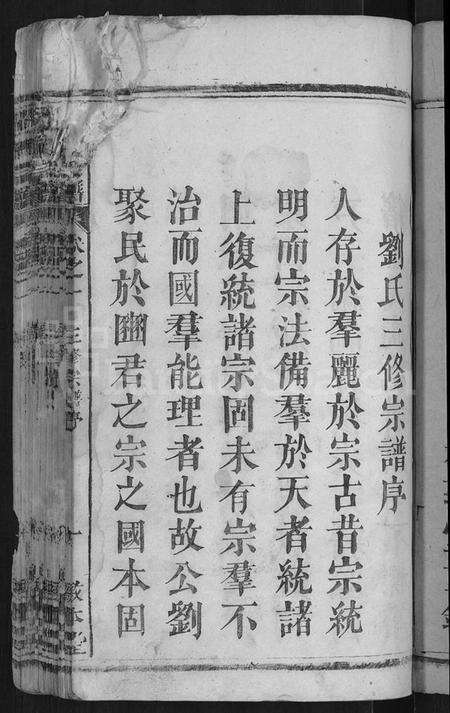 劉氏三修宗譜序
人存於羣麗於宗古昔宗統
明而宗法備羣於天者統諸
上復統諸宗固未有宗羣不
治而國羣能理者也故公劉
聚民於豳君之宗之國本固
三修宗譜序
一
敦本堂